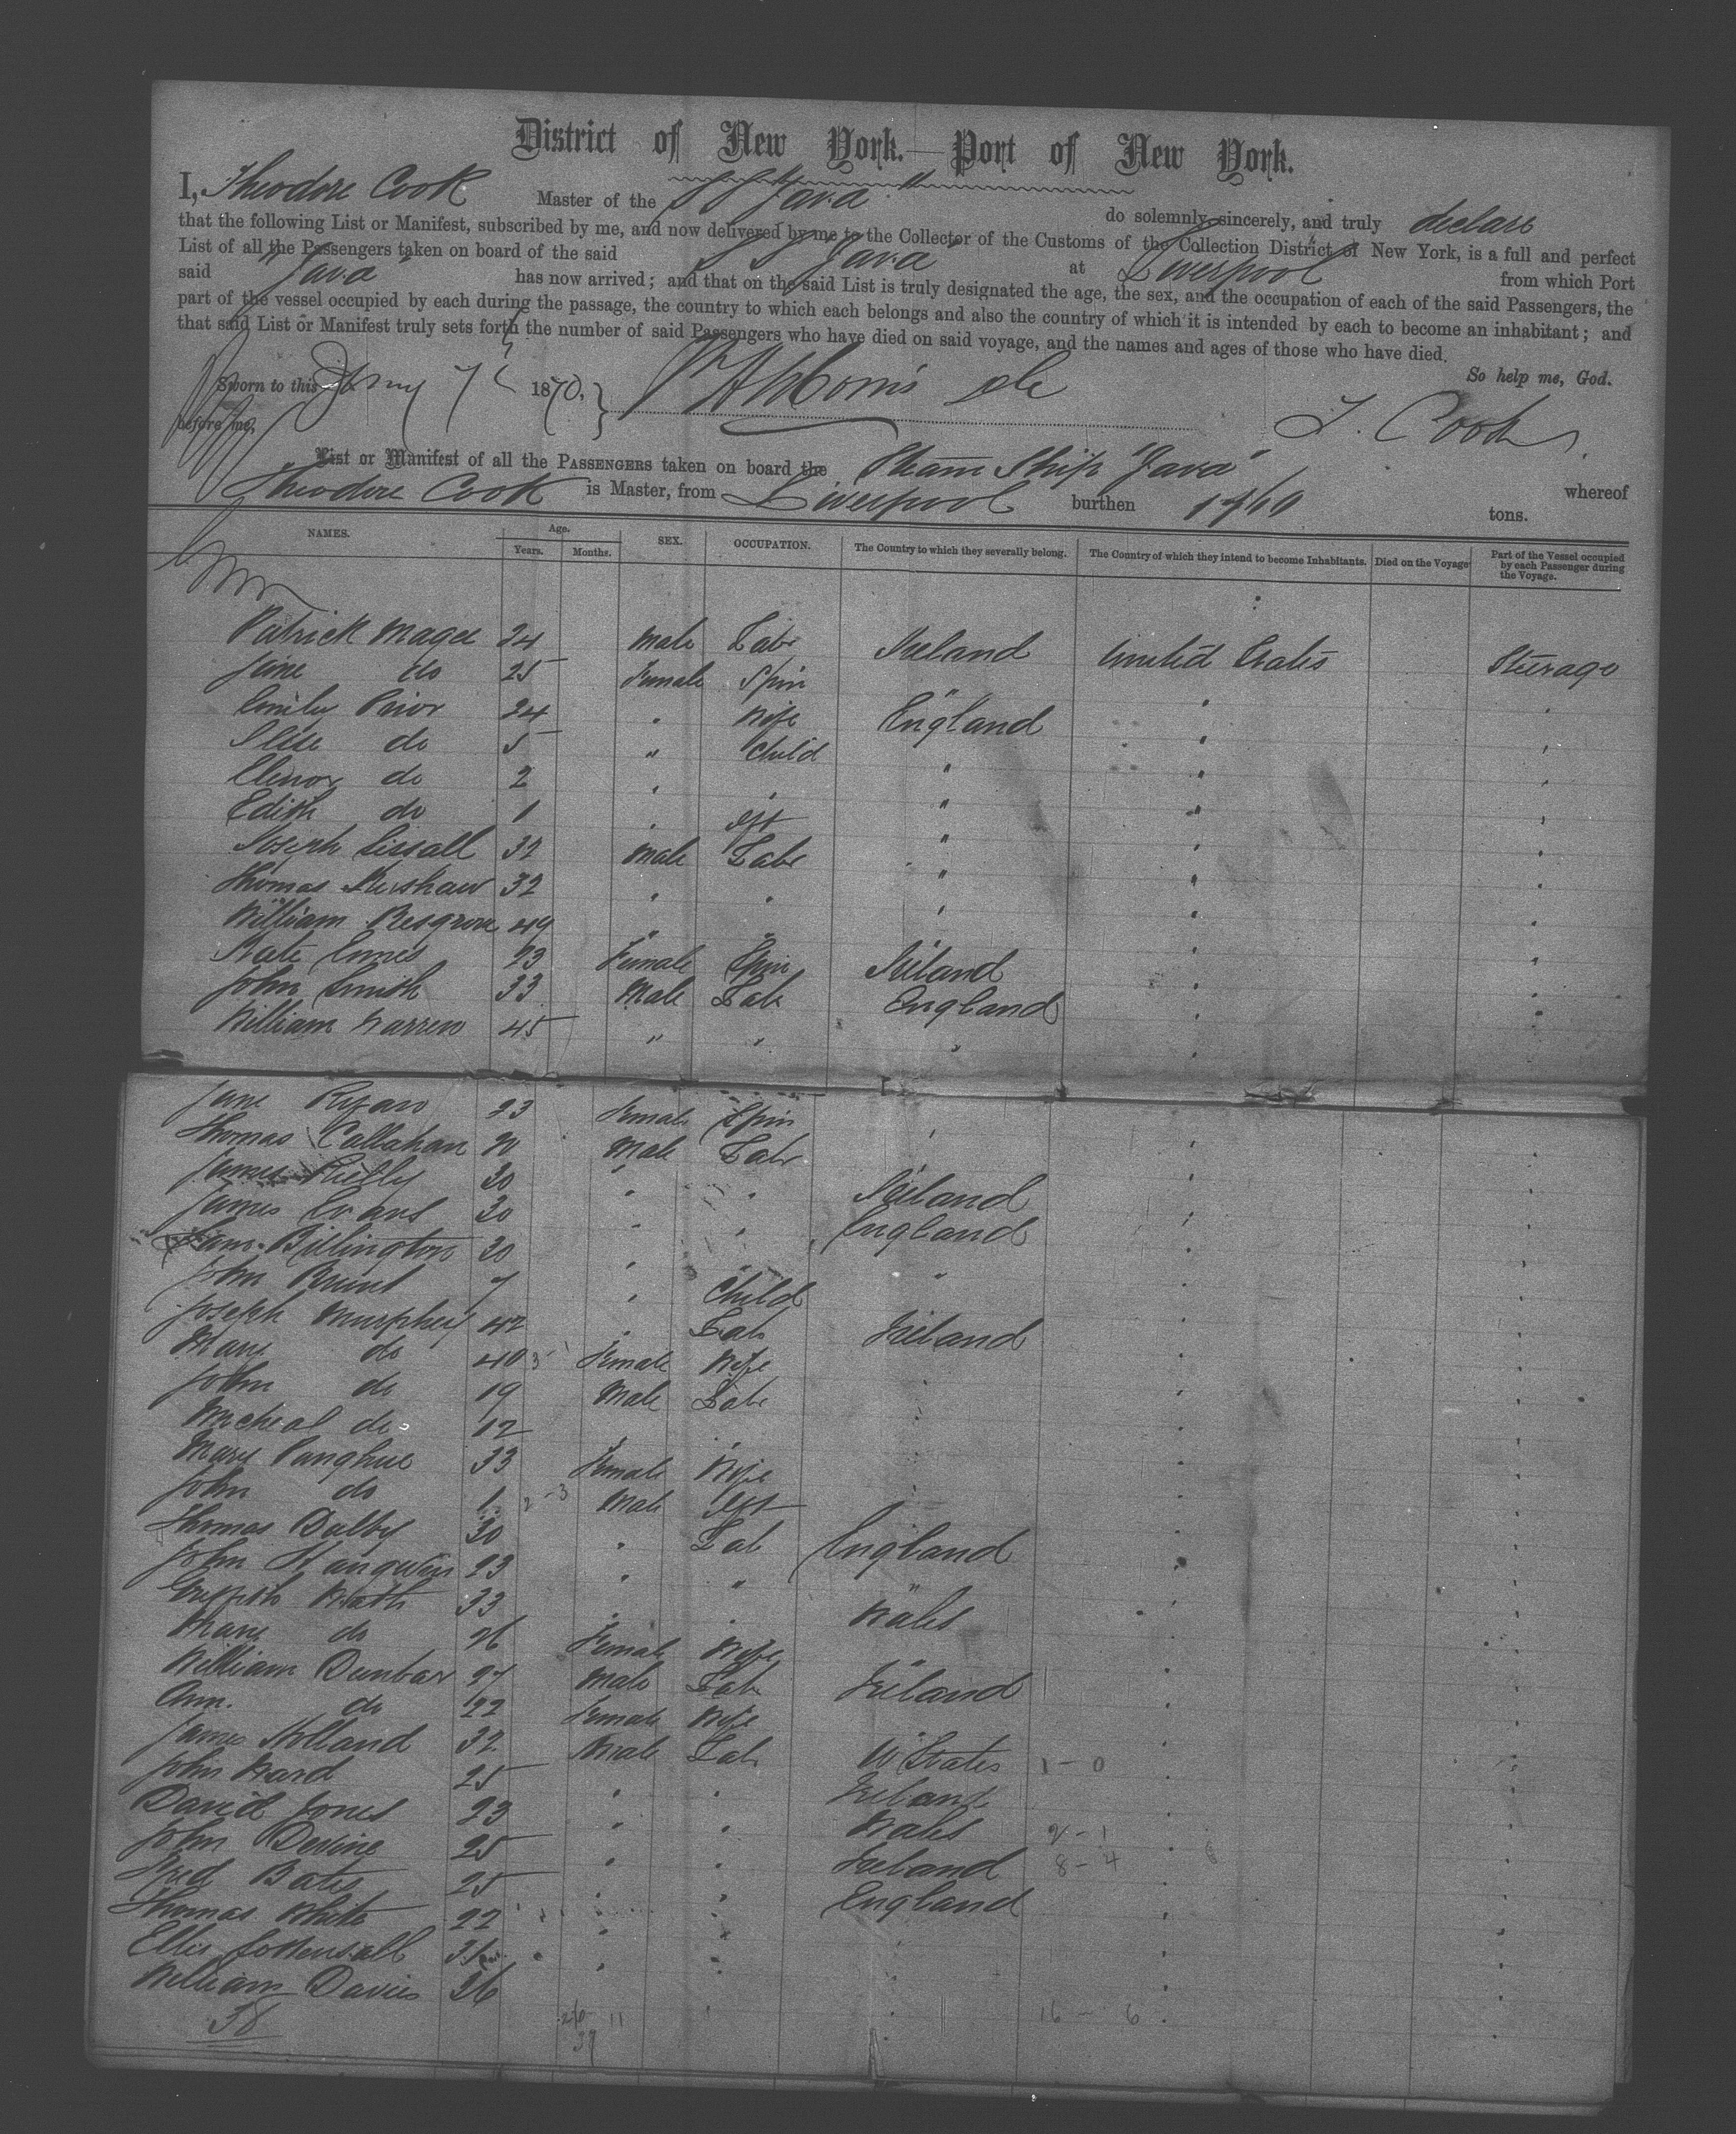 District of New York.—Port of New York.
I, Theodore Cook Master of the SS "Java" do solemnly, sincerely, and truly declare
that the following List or Manifest, subscribed by me, and now delivered by me to the Collector of the Customs of the Collection District of New York, is a full and perfect
List of all the Passengers taken on board of the said SS Java at Liverpool from which Port
said Java has now arrived; and that on the said List is truly designated the age, the sex, and the occupation of each of the said Passengers, the
part of the vessel occupied by each during the passage, the country to which each belongs and also the country of which it is intended by each to become an inhabitant; and
that said List or Manifest truly sets forth the number of said Passengers who have died on said voyage, and the names and ages of those who have died.
So help me, God.
Sworn to this 7 1870,
before me. T. Cook
List or Manifest of all the PASSENGERS taken on board the Steam Ship "Java" whereof
Theodore Cook is Master, from Liverpool burthen 1760 tons.
NAMES. Age. Years. Months. SEX. OCCUPATION. The Country to which they severally belong. The Country of which they intend to become Inhabitants. Died on the Voyage Part of the Vessel occupied by each Passenger during the Voyage.
Patrick Magee 24 Male Labr Ireland United States Steerage
Jane do 25 Female Spin "
Emily Prior 24 " Wife England
do 5 " Child
Elenor do 2 " " "
Edith do 1 " "
Joseph 32 Male Labr "
Thomas Kershaw 32 " " "
William 49 " " "
Kate 23 Female Spin Ireland
John Smith 33 Male Lab England
William Warren 45 " " "
Jane Ryan 23 Female Spin "
Thomas Callahan 20 Male Labr "
James Rielly 30 " " Ireland
James Evans 30 " " England
Billington 30 " " "
John Brunt 7 " Child "
Joseph Murphey 42 " Lab Ireland
Mary do 40 Female Wife
John do 19 Male Labr
Micheal do 12
Mary 33 Female Wife
John do 1 Male
Thomas Dalby 30 " Lab England
John 23 " " "
Griffith 33 " " Wales
Mary do 26 Female Wife "
William Dunbar 27 Male Lab Ireland
Ann. do 22 Female Wife
James Holland 32 Male Lab U States 1-0
John Ward 25 " " Ireland
David Jones 23 " " Wales 2-1
John Devine 25 " " Ireland 8-4
Fred Bates 25 " " England
Thomas White 22 " "
Ellis 31 " "
William Davies 26
38 26 11 16 - 6
37